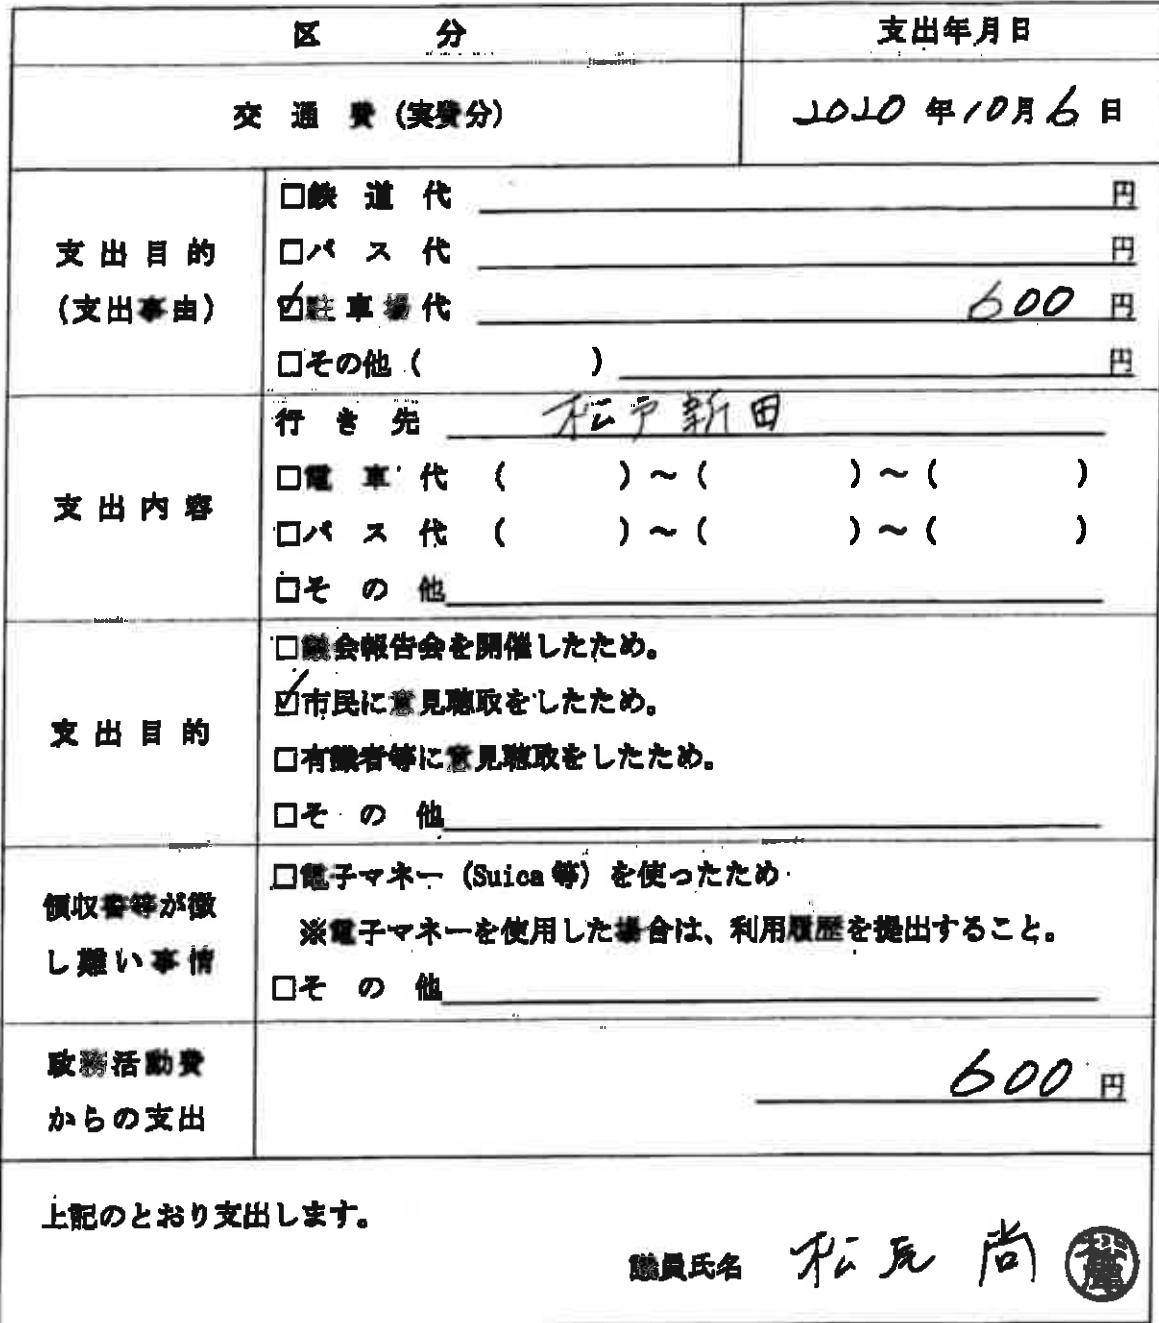 区 分 支出年月日
交 通 費 (実費分) 2020 年 10 月 6 日
支出目的
(支出事由)
□鉄 道 代 円
□バ ス 代 円
☑駐 車 場 代 600 円
□その他 ( ) 円
支出内容
行 き 先 松戸新田
□電 車 代 ( ) ～ ( ) ～ ( )
□バ ス 代 ( ) ～ ( ) ～ ( )
□そ の 他
支出目的
□議会報告会を開催したため。
☑市民に意見聴取をしたため。
□有識者等に意見聴取をしたため。
□そ の 他
領収書等が徴
し難い事情
□電子マネー (Suica 等) を使ったため
※電子マネーを使用した場合は、利用履歴を提出すること。
□そ の 他
政務活動費
からの支出
600 円
上記のとおり支出します。
議員氏名 松尾 尚